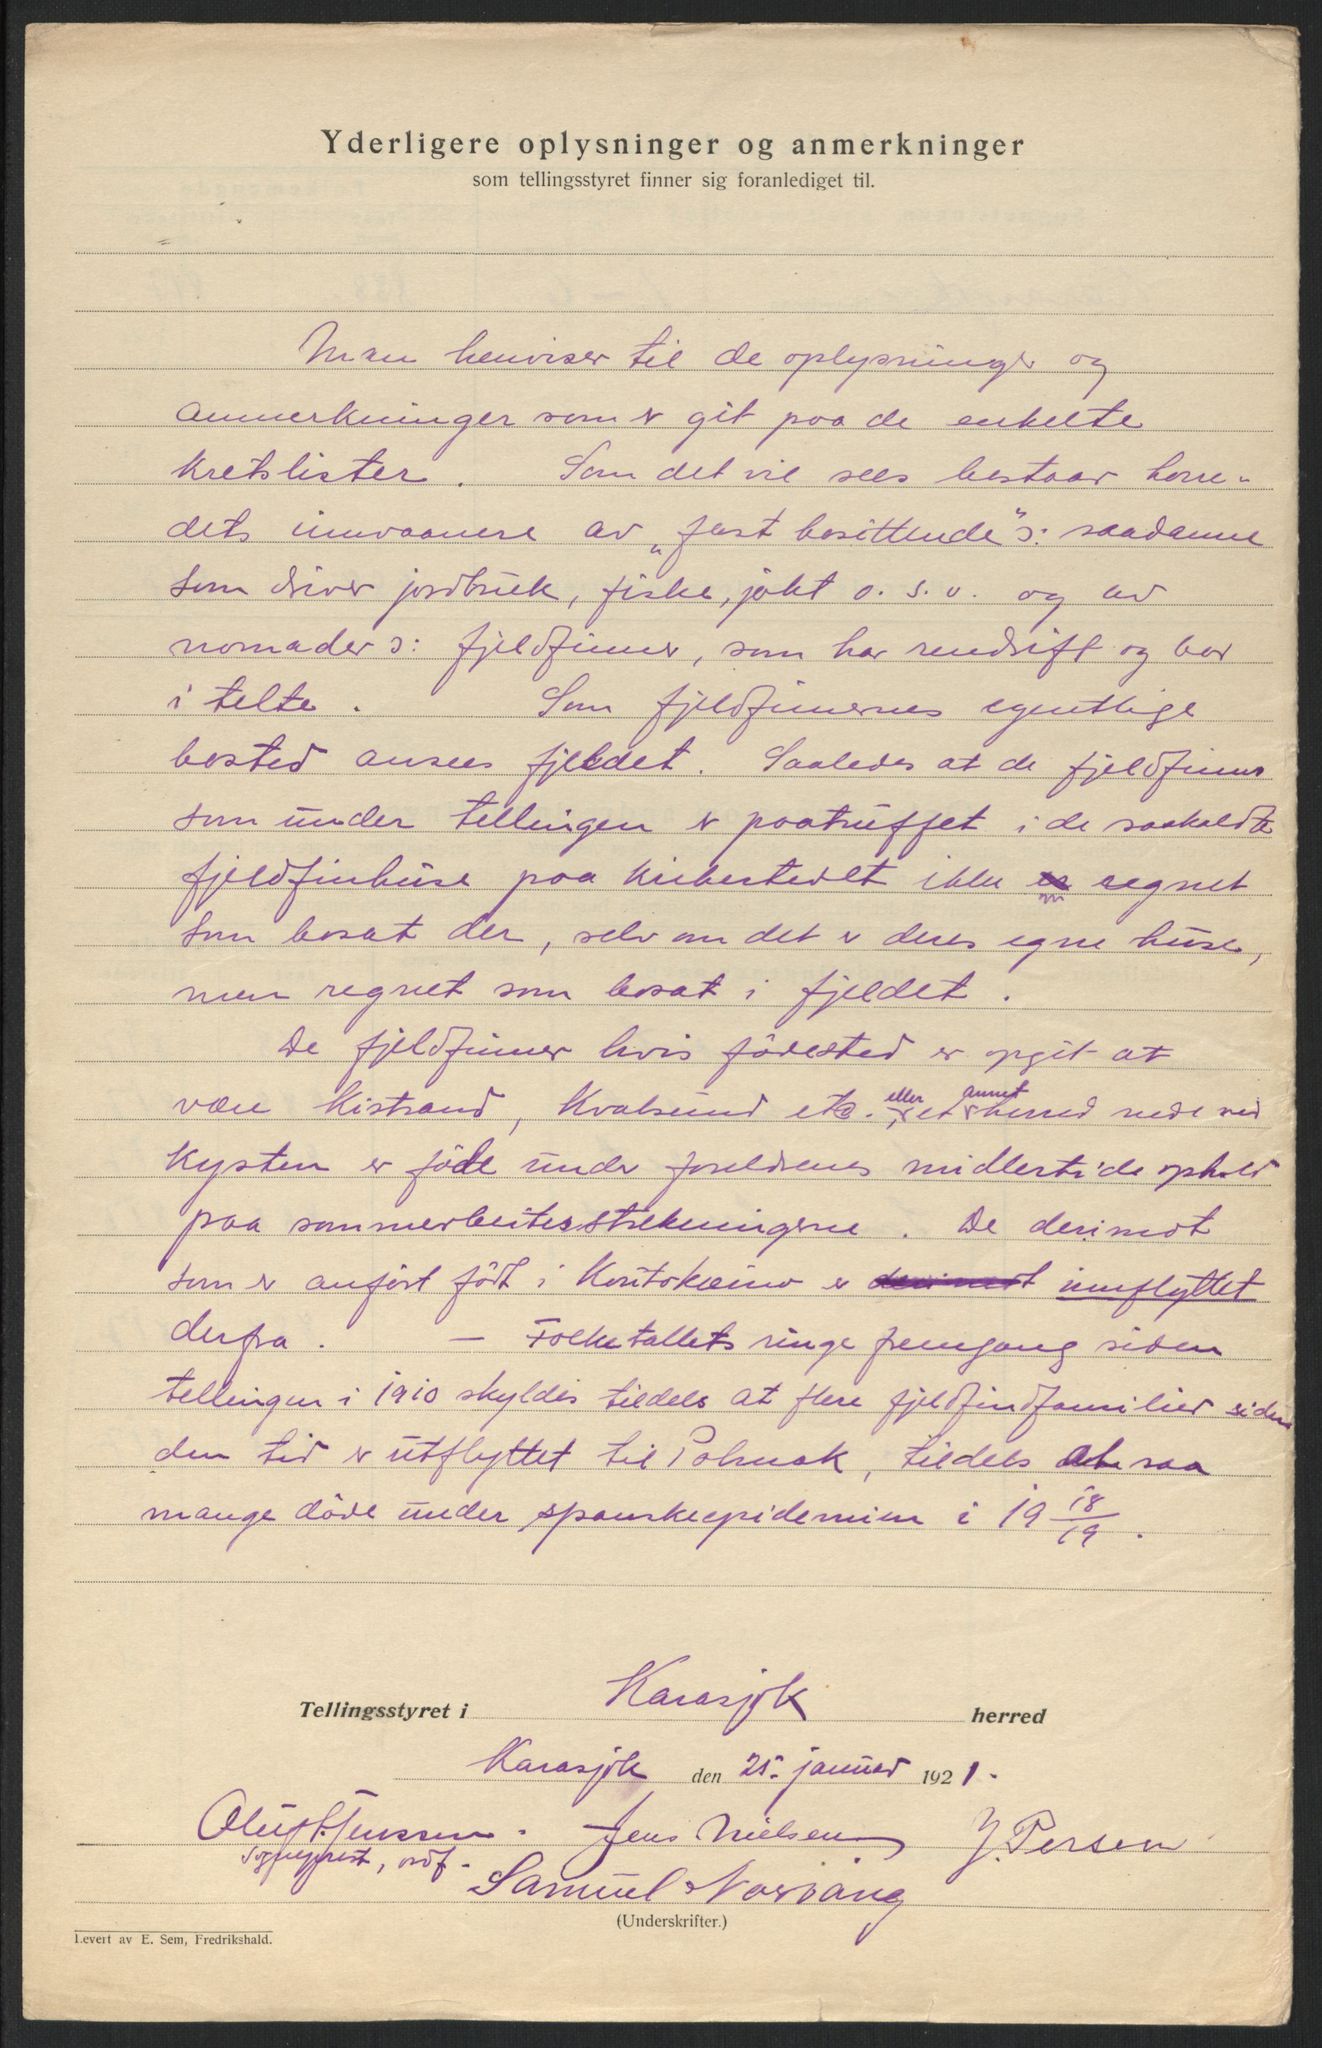 Yderligere oplysninger og anmerkninger
som tellingsstyret finner sig foranlediget til.
Man henviser til de oplysninger og
anmerkninger som er git paa de enkelte
kretslister. Som det vil sees bestaar herre-
dets innvaanere av "fast bosittende" ɔ: saadanne
som driver jordbruk, fiske, jakt o. s. v. og av
nomader ɔ: fjeldfinner, som har rendrift og bor
i telte. Som fjeldfinnernes egentlige
bosted ansees fjeldet. Saaledes at de fjeldfinner
som under tellingen er paatruffet i de saakaldte
fjeldfinhuse paa kirkestedet ikke er regnet
som bosat der, selv om det er deres egne huse,
men regnet som bosat i fjeldet.
De fjeldfinner hvis fødested er opgit at
være Kistrand, Kvalsund etc. eller et annet herred nede ved
kysten er fødte under foreldrenes midlertide ophold
paa sommerbeitesstrekningerne. De derimot
som er anført født i Koutokeino er derimot innflyttet
derfra. — Folketallets ringe fremgang siden
tellingen i 1910 skyldes tildels at flere fjeldfindfamilier siden
den tid er utflyttet til Polmak, tildels at saa
mange døde under spanskeepidemien i 19 18/19.
Tellingsstyret i Karasjok herred
Karasjok den 25. januar 1921.
Oluf Jenssen. Jens Nielsen J. Persen
sogneprest, ordf.
Samuel Norvang
(Underskrifter.)
Levert av E. Sem, Fredrikshald.